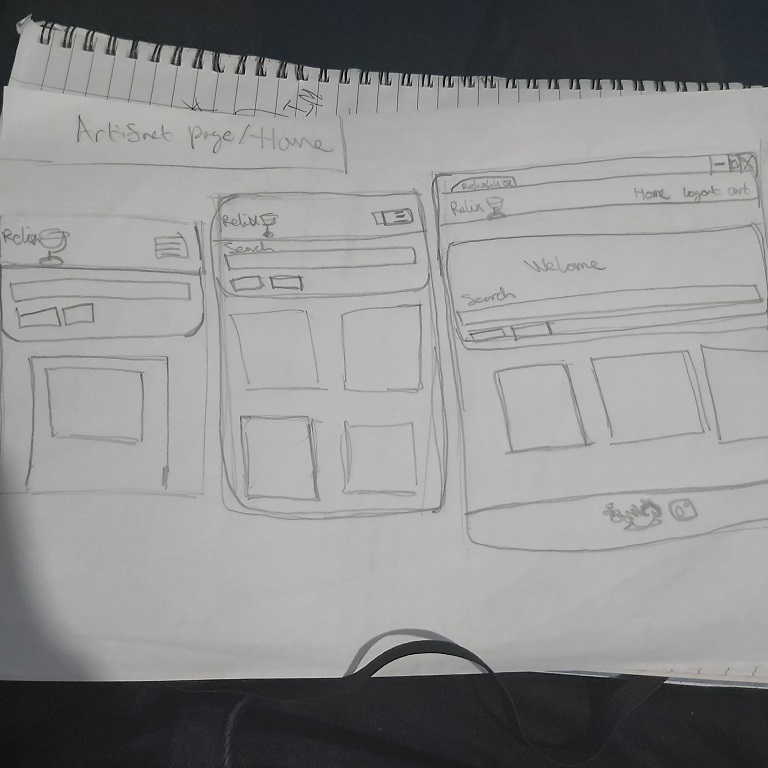 Artisnet page/Home
Relix
Relix
Search
Relix
Home Logout cart
Welome
Search